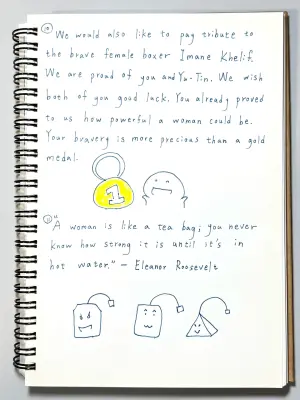 ⑩ We would also like to pay tribute to
the brave female boxer Imane Khelif.
We are proud of you and Yu-Tin. We wish
both of you good luck. You already proved
to us how powerful a woman could be.
Your bravery is more precious than a gold
medal.
1
⑪ "A woman is like a tea bag; you never
know how strong it is until it's in
hot water." - Eleanor Roosevelt